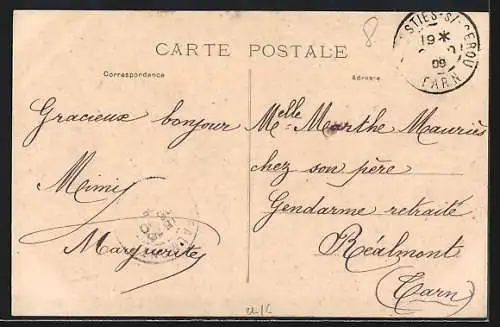 CARTE POSTALE
Correspondance
Adresse
Gracieux bonjour
Mimi
Marguerite
Melle Marthe Mauriès
chez son père
Gendarme retraité
Réalmont
(Tarn)
8
STIES-S/-CEROU
19 *
09
TARN